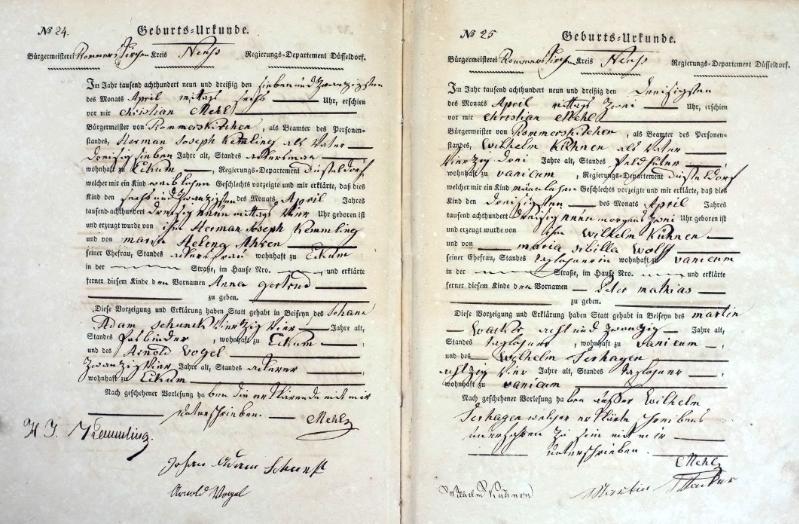 № 24.
Geburts-Urkunde.
Bürgermeisterei Rommerskirchen Kreis Neuss Regierungs-Departement Düsseldorf.
In Jahr tausend achthundert neun und dreißig den sieben und zwanzigsten
des Monats April mittags sechs Uhr, erschien
vor mir Christian Mehl
Bürgermeister von Rommerskirchen, als Beamter des Personen-
standes, Herman Joseph Kemling als Vater
dreisig sieben Jahre alt, Standes Ackersman
wohnhaft zu Eikum, Regierungs-Departement Düsseldorf
welcher mir ein Kind weiblichen Geschlechts vorzeigte und mir erklärte, daß dies
Kind den sechs und zwanzigsten des Monats April Jahres
tausend achthundert dreisig neun mittags vier Uhr geboren ist
und erzeugt wurde von ihm Herman Joseph Kemmling
und von maria Helena Ahren
seiner Ehefrau, Standes ackersfrau wohnhaft zu Eikum
in der Straße, im Hause Nro. und erklärte
ferner diesem Kinde den Vornamen Anna gertrud
zu geben.
Diese Vorzeigung und Erklärung haben Statt gehabt in Beiseyn des Johann
Adam Schunck vierzig vier Jahre alt,
Standes Fasbinder, wohnhaft zu Eikum
und des Arnold Vogel
zwanzig vier Jahre alt, Standes ackerer
wohnhaft zu Eikum
Nach geschehener Vorlesung haben die erklärende mit mir
unterschrieben. Mehl
H. J. Kemmling.
Johan Adam
Arnold Vogel
№ 25
Geburts-Urkunde.
Bürgermeisterei Rommerskirchen Kreis Neuss Regierungs-Departement Düsseldorf.
In Jahr tausend achthundert neun und dreißig den Dreisigsten
des Monats April mittags zwei Uhr, erschien
vor mir Christian Mehl
Bürgermeister von Rommerskirchen, als Beamter des Personen-
standes, Wilhelm Kühnen als Vater
vierzig drei Jahre alt, Standes
wohnhaft zu vanicum, Regierungs-Departement Düsseldorf
welcher mir ein Kind männlichen Geschlechts vorzeigte und mir erklärte, daß dies
Kind den dreisigsten des Monats April Jahres
tausend achthundert dreisig neun morgens zwei Uhr geboren ist
und erzeugt wurde von ihm Wilhelm Kühnen
und von maria sibilla Wolff
seiner Ehefrau, Standes taglöhnerin wohnhaft zu vanicum
in der Straße, im Hause Nro. und erklärte
ferner diesem Kinde den Vornamen Peter mathias
zu geben.
Diese Vorzeigung und Erklärung haben Statt gehabt in Beiseyn des martin
acht und zwanzig Jahre alt,
Standes taglöhner, wohnhaft zu vanicum
und des Wilhelm Terhagen
vier Jahre alt, Standes taglöhner
wohnhaft zu vanicum
Nach geschehener Vorlesung haben außer Wilhelm
Terhagen welcher erklärte schreibens
unerfahren zu sein mit mir
unterschrieben.
Mehl
Wilhelm Kühnen
Martin